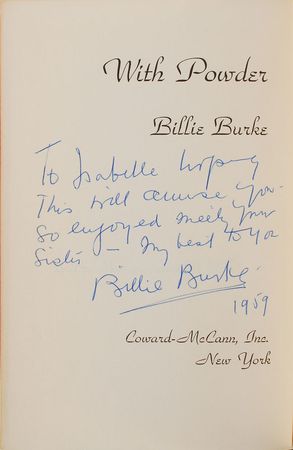 With Powder
Billie Burke
To Isabelle hoping
This will amuse you -
So enjoyed meeting your
Sister - My best to you
Billie Burke
1959
Coward-McCann, Inc.
New York